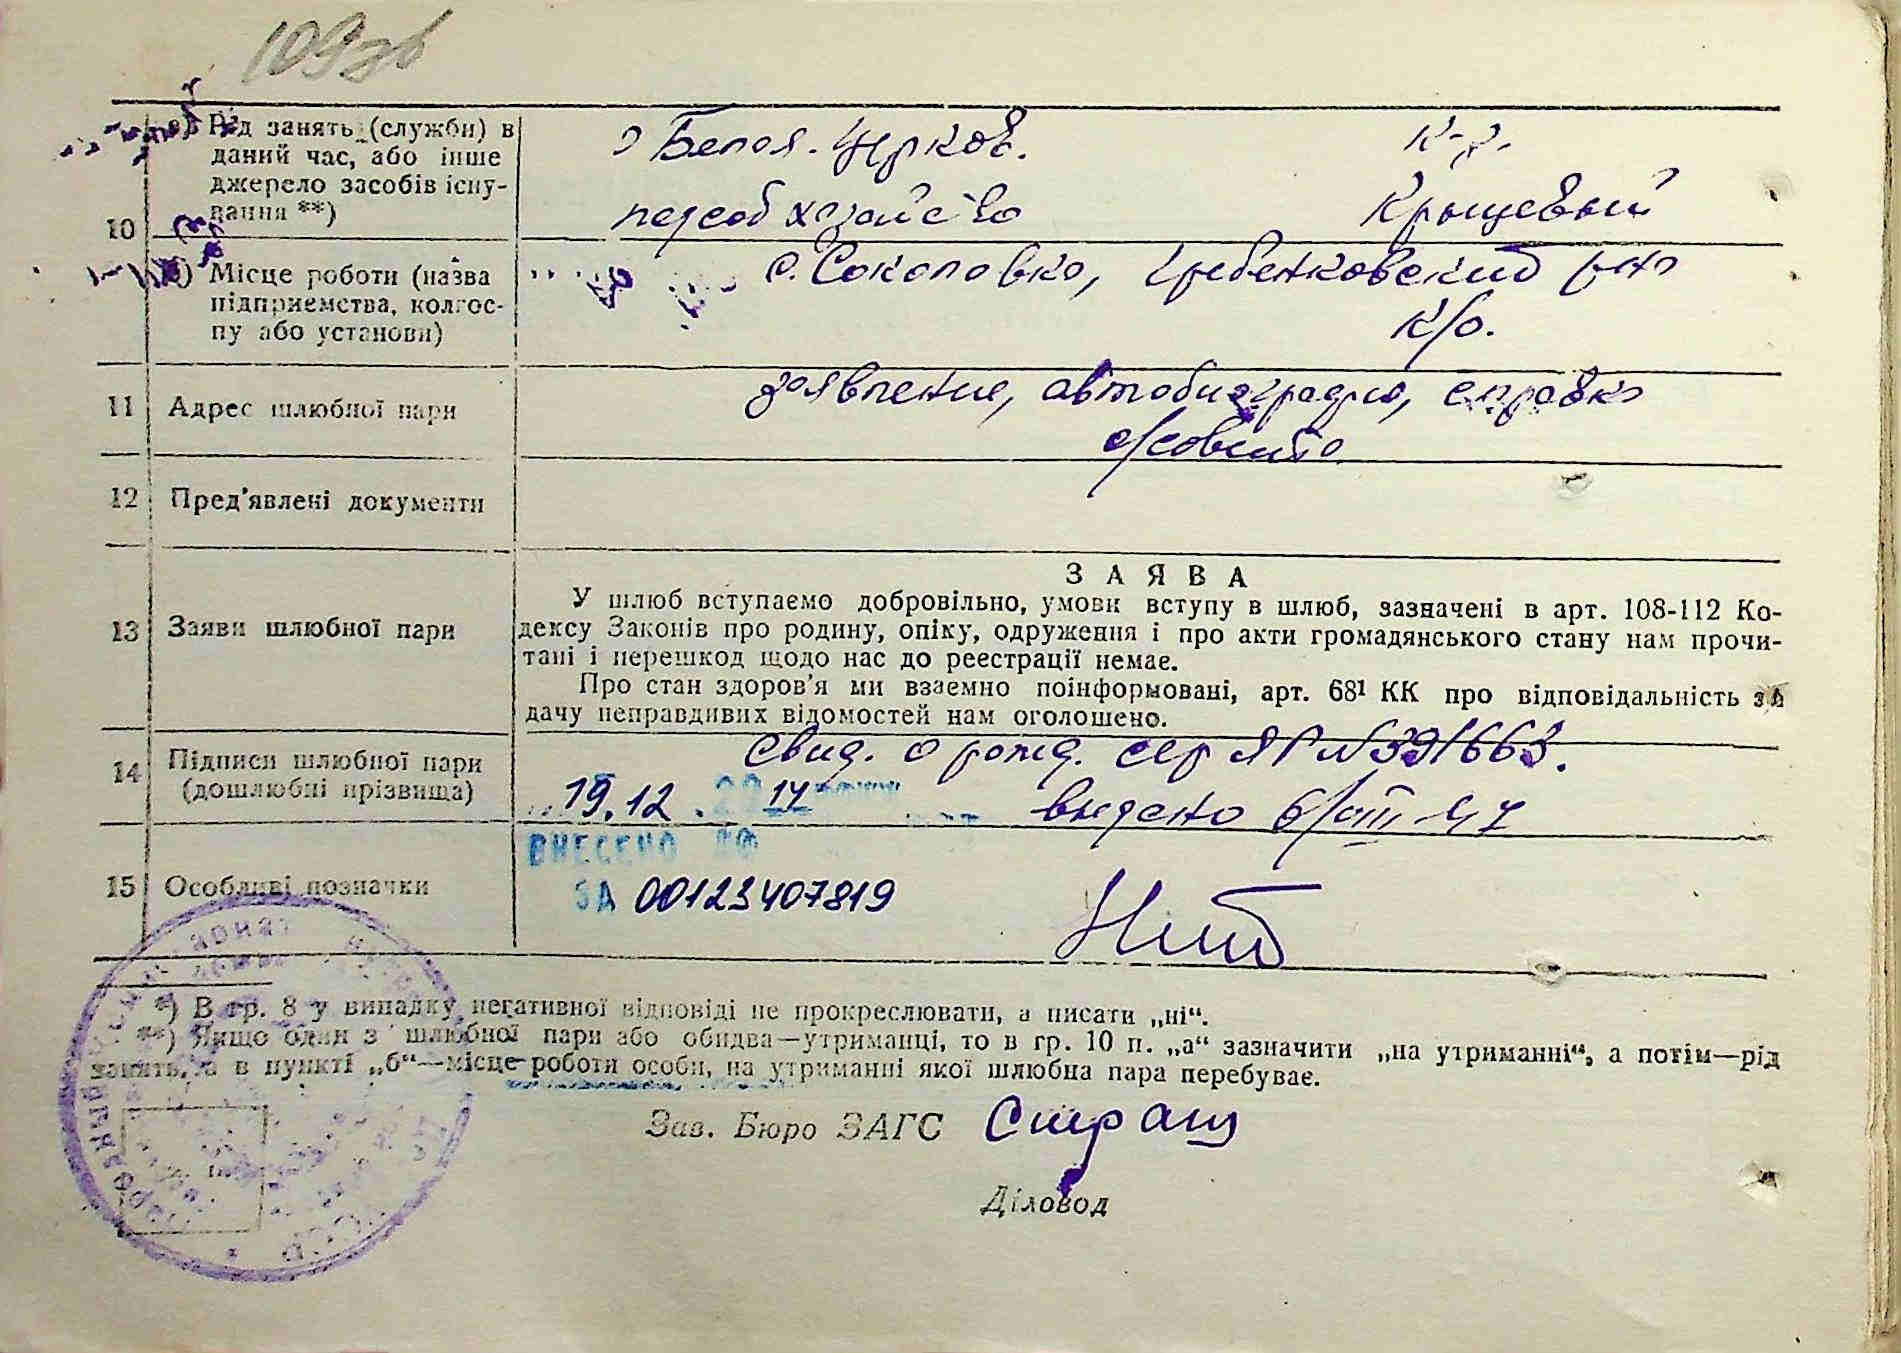 109зв
а) Рід занять (служби) в
даний час, або інше
джерело засобів існу-
вання **)
г Белая. Церковь.
к-з.
хозяйство
10
б) Місце роботи (назва
підприємства, колгос-
пу або установи)
с. Соколовка, Гребенковский р-на
К/о.
11 Адрес шлюбної пари
заявление, автобиография, справка
с/совета
12 Пред'явлені документи
13 Заяви шлюбної пари
ЗАЯВА
У шлюб вступаємо добровільно, умови вступу в шлюб, зазначені в арт. 108-112 Ко-
дексу Законів про родину, опіку, одруження і про акти громадянського стану нам прочи-
тані і перешкод щодо нас до реєстрації немає.
Про стан здоров'я ми взаємно поінформовані, арт. 68¹ КК про відповідальність за
дачу неправдивих відомостей нам оголошено.
14 Підписи шлюбної пари
(дошлюбні прізвища)
Свид. о рожд. сер ЯР N 391663.
19.12. 2014
выдано 6/VIII-47
15 Особливі позначки
ВНЕСЕНО ДО
ЗА 00123407819
*) В гр. 8 у випадку негативної відповіді не прокреслювати, а писати „ні“.
**) Якщо один з шлюбної пари або обидва—утриманці, то в гр. 10 п. „а“ зазначити „на утриманні“, а потім—рід
занять, а в пункті „б“—місце роботи особи, на утриманні якої шлюбна пара перебуває.
Зав. Бюро ЗАГС
Діловод